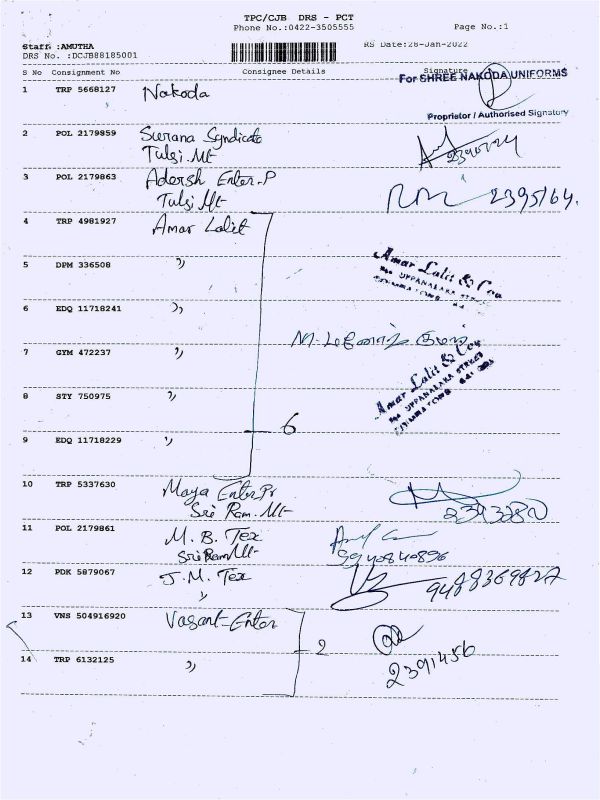 TPC/CJB DRS - PCT
Phone No.:0422-3505555
Page No.:1
Staff :AMUTHA
RS Date:28-Jan-2022
DRS No. :DCJB88185001
S No Consignment No Consignee Details Signature
For SHREE NAKODA UNIFORMS
1 TRP 5668127 Nakoda
Proprietor / Authorised Signatory
2 POL 2179859 Surana Syndicate
Tulsi Mt
3 POL 2179863 Adersh Enter.P
Tulsi Mt
4 TRP 4981927 Amar Lalit
5 DPM 336508 ))
Amar Lalit & Co
UPPANALARA STREET
6 EDQ 11718241 ))
7 GYM 472237 ))
Amar Lalit & Co
UPPANALARA STREET
8 STY 750975 ))
6
9 EDQ 11718229 ))
10 TRP 5337630 Maya Enter Pr
Sri Ram. Mt
11 POL 2179861 M. B. Tex
Sri Ram Mt
9940840896
12 PDK 5879067 J.M. Tex
))
13 VNS 504916920 Vasant Enter
2
14 TRP 6132125 ))
2391456